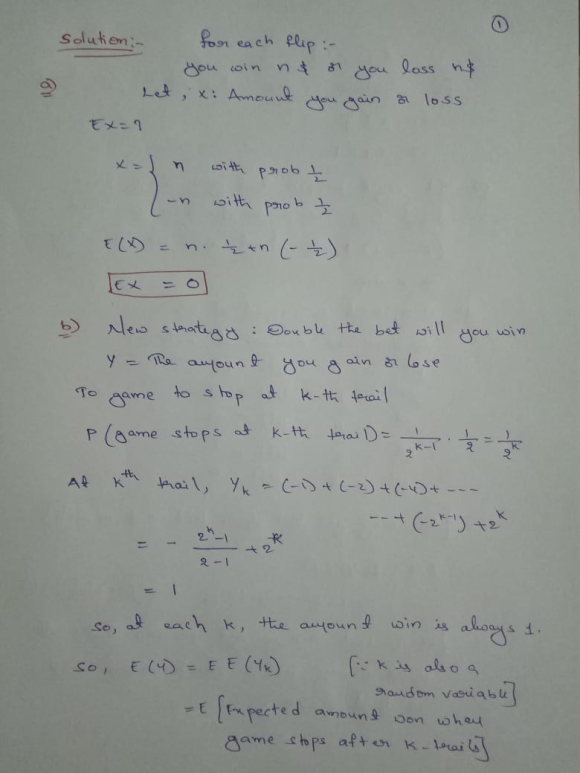 ①
Solution:- for each flip:-
you win n $ or you loss n$
a) Let, x: Amount you gain or loss
EX=?
X = { n with prob 1/2
-n with prob 1/2
E(X) = n. 1/2 +n (- 1/2)
EX = 0
b) New strategy : Double the bet will you win
Y = The amount you gain or lose
To game to stop at k-th trail
P (game stops at k-th trail) = 1/2^(k-1) . 1/2 = 1/2^k
At k^th trail, Y_k = (-1) + (-2) + (-4) + ---
--- + (-2^(k-1)) + 2^k
= - (2^k-1)/(2-1) + 2^k
= 1
so, at each k, the amount win is always 1.
so, E(Y) = E E(Y_k) [∵ k is also a
random variable]
= E [Expected amount won when
game stops after k-trails]